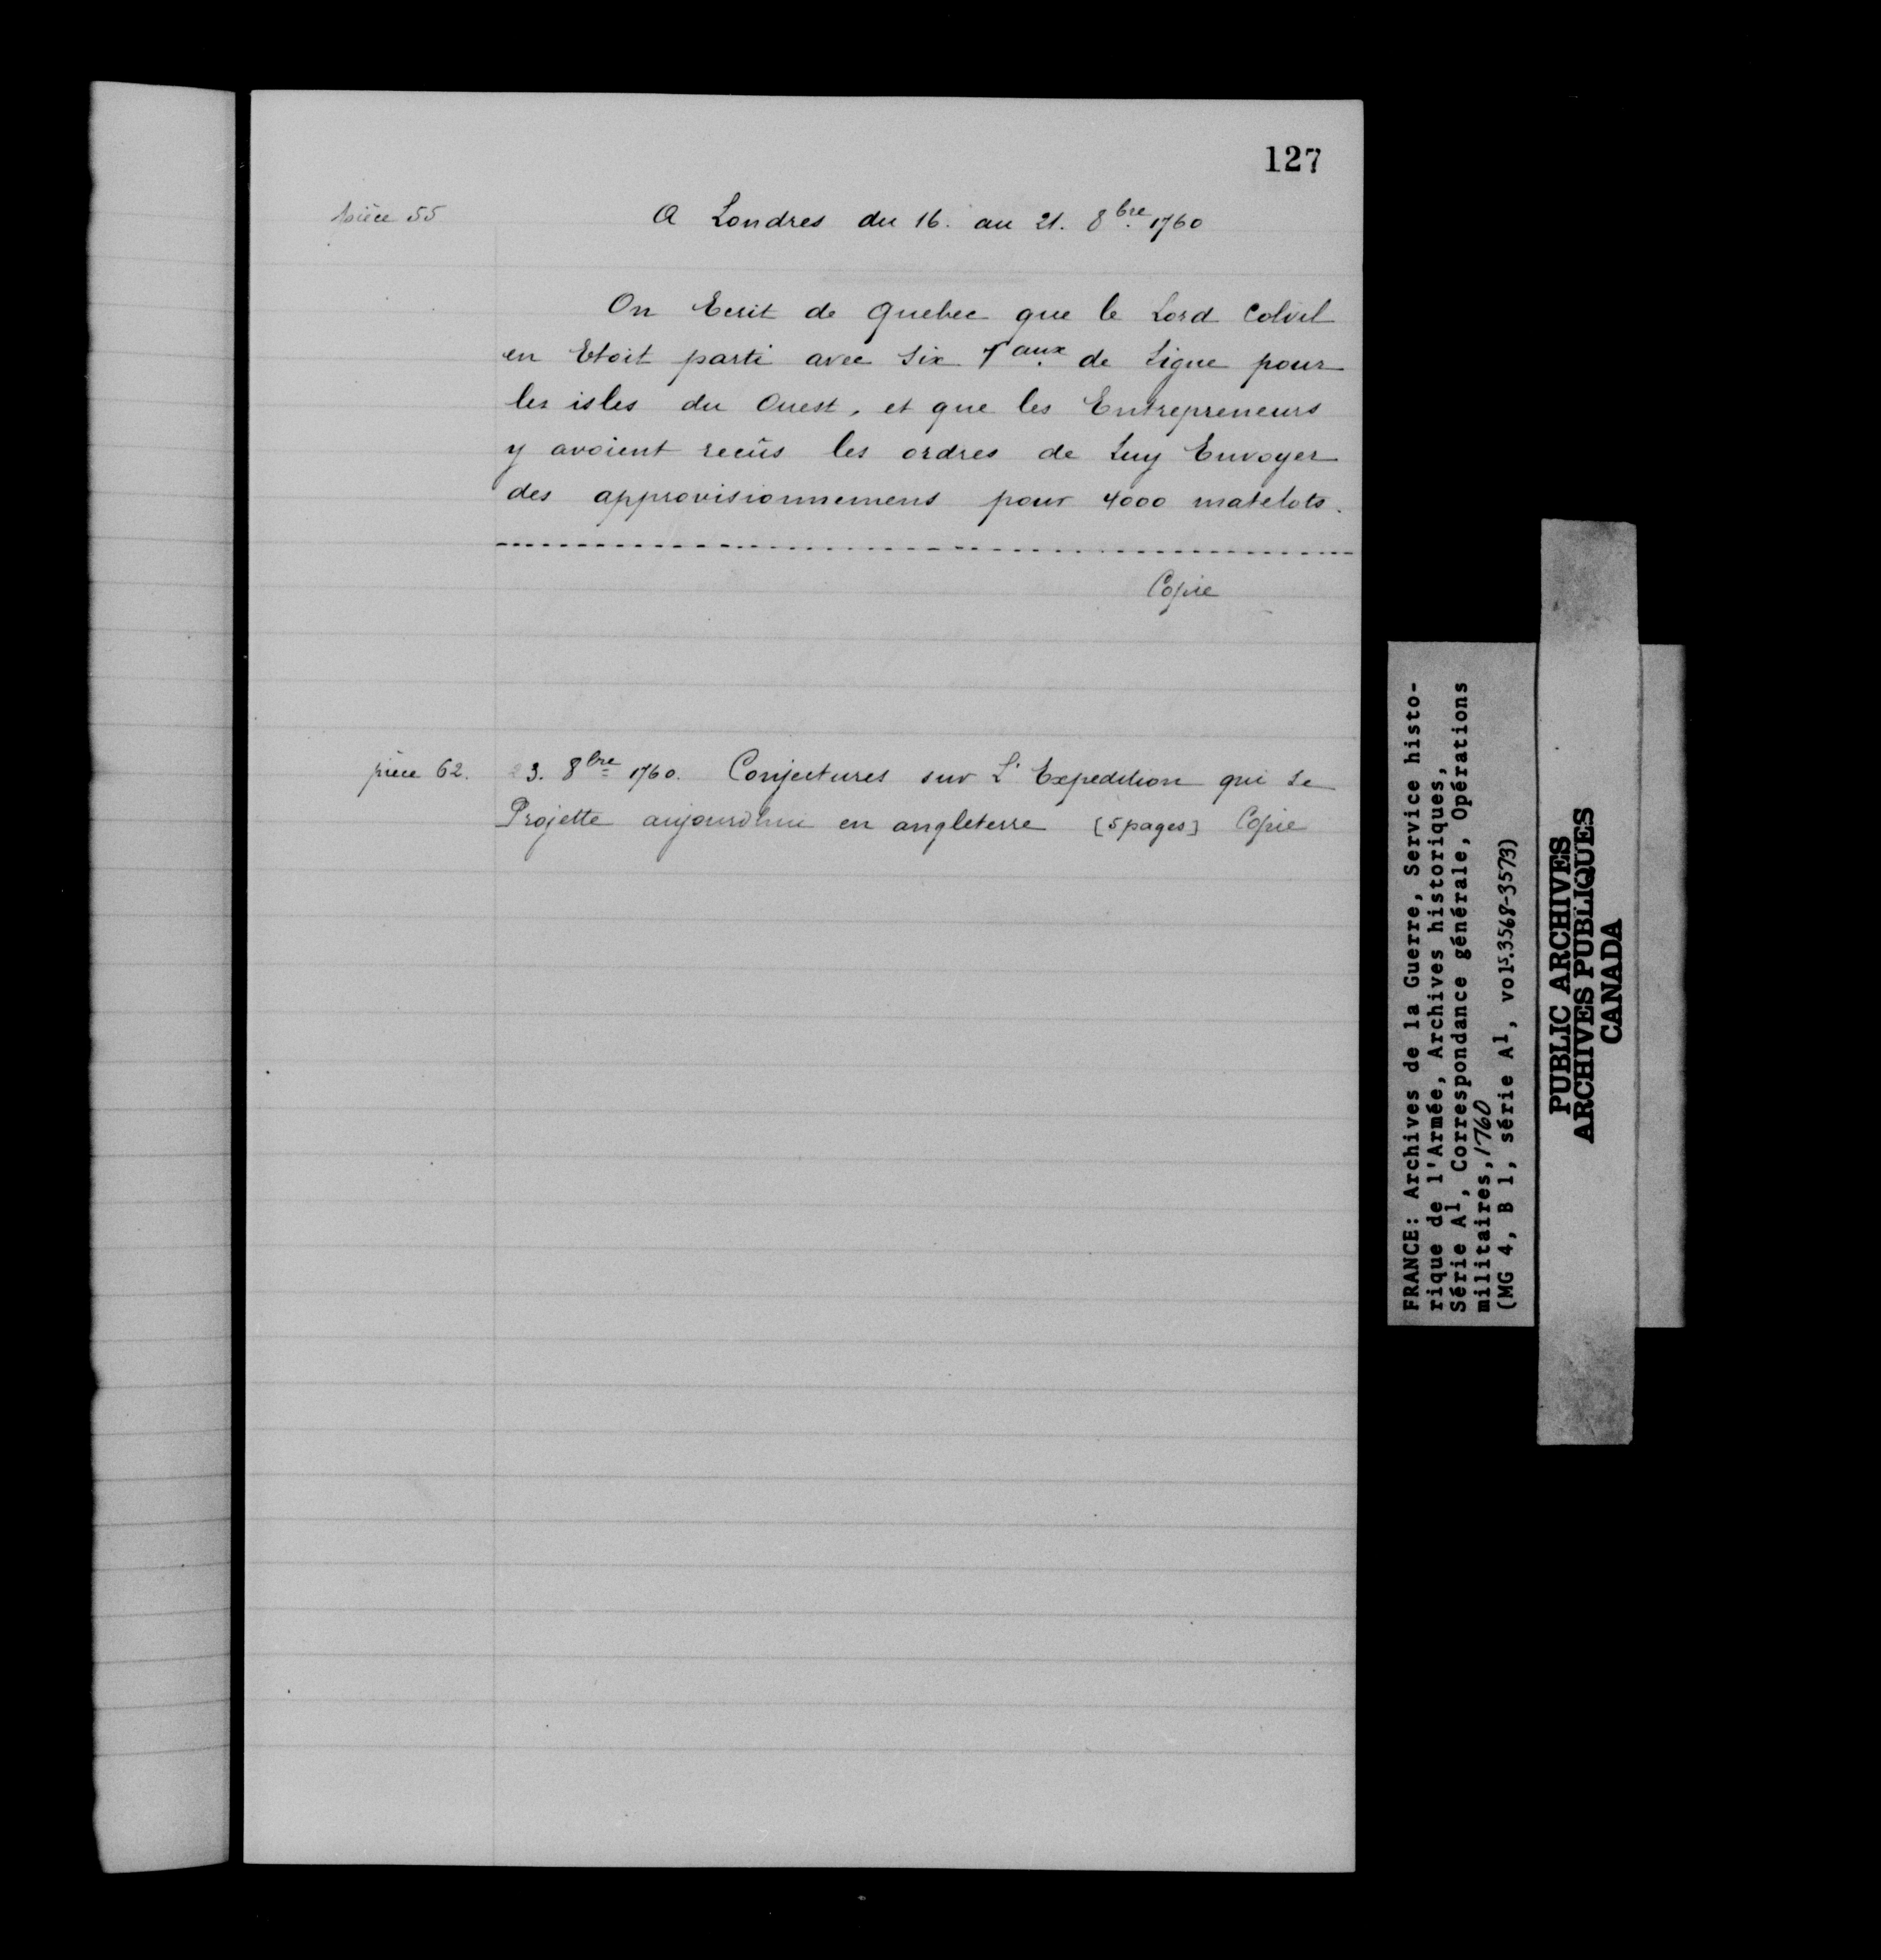 127
pièce 55
A Londres du 16. au 21. 8bre. 1760
On Ecrit de Quebec que le Lord Colvil
en Etoit parti avec Six Vaux. de Ligne pour
les isles du Ouest, et que les Entrepreneurs
y avoient reçûs les ordres de Luy Envoyer
des approvisionnemens pour 4000 matelots.
Copie
pièce 62.
23. 8bre 1760. Conjectures sur L'Expedition qui se
Projette aujourdhui en angleterre [5 pages] Copie
FRANCE: Archives de la Guerre, Service histo-
rique de l'Armée, Archives historiques,
Série A1, Correspondance générale, Opérations
militaires, 1760
(MG 4, B 1, série A1, vols. 3568-3573)
PUBLIC ARCHIVES
ARCHIVES PUBLIQUES
CANADA